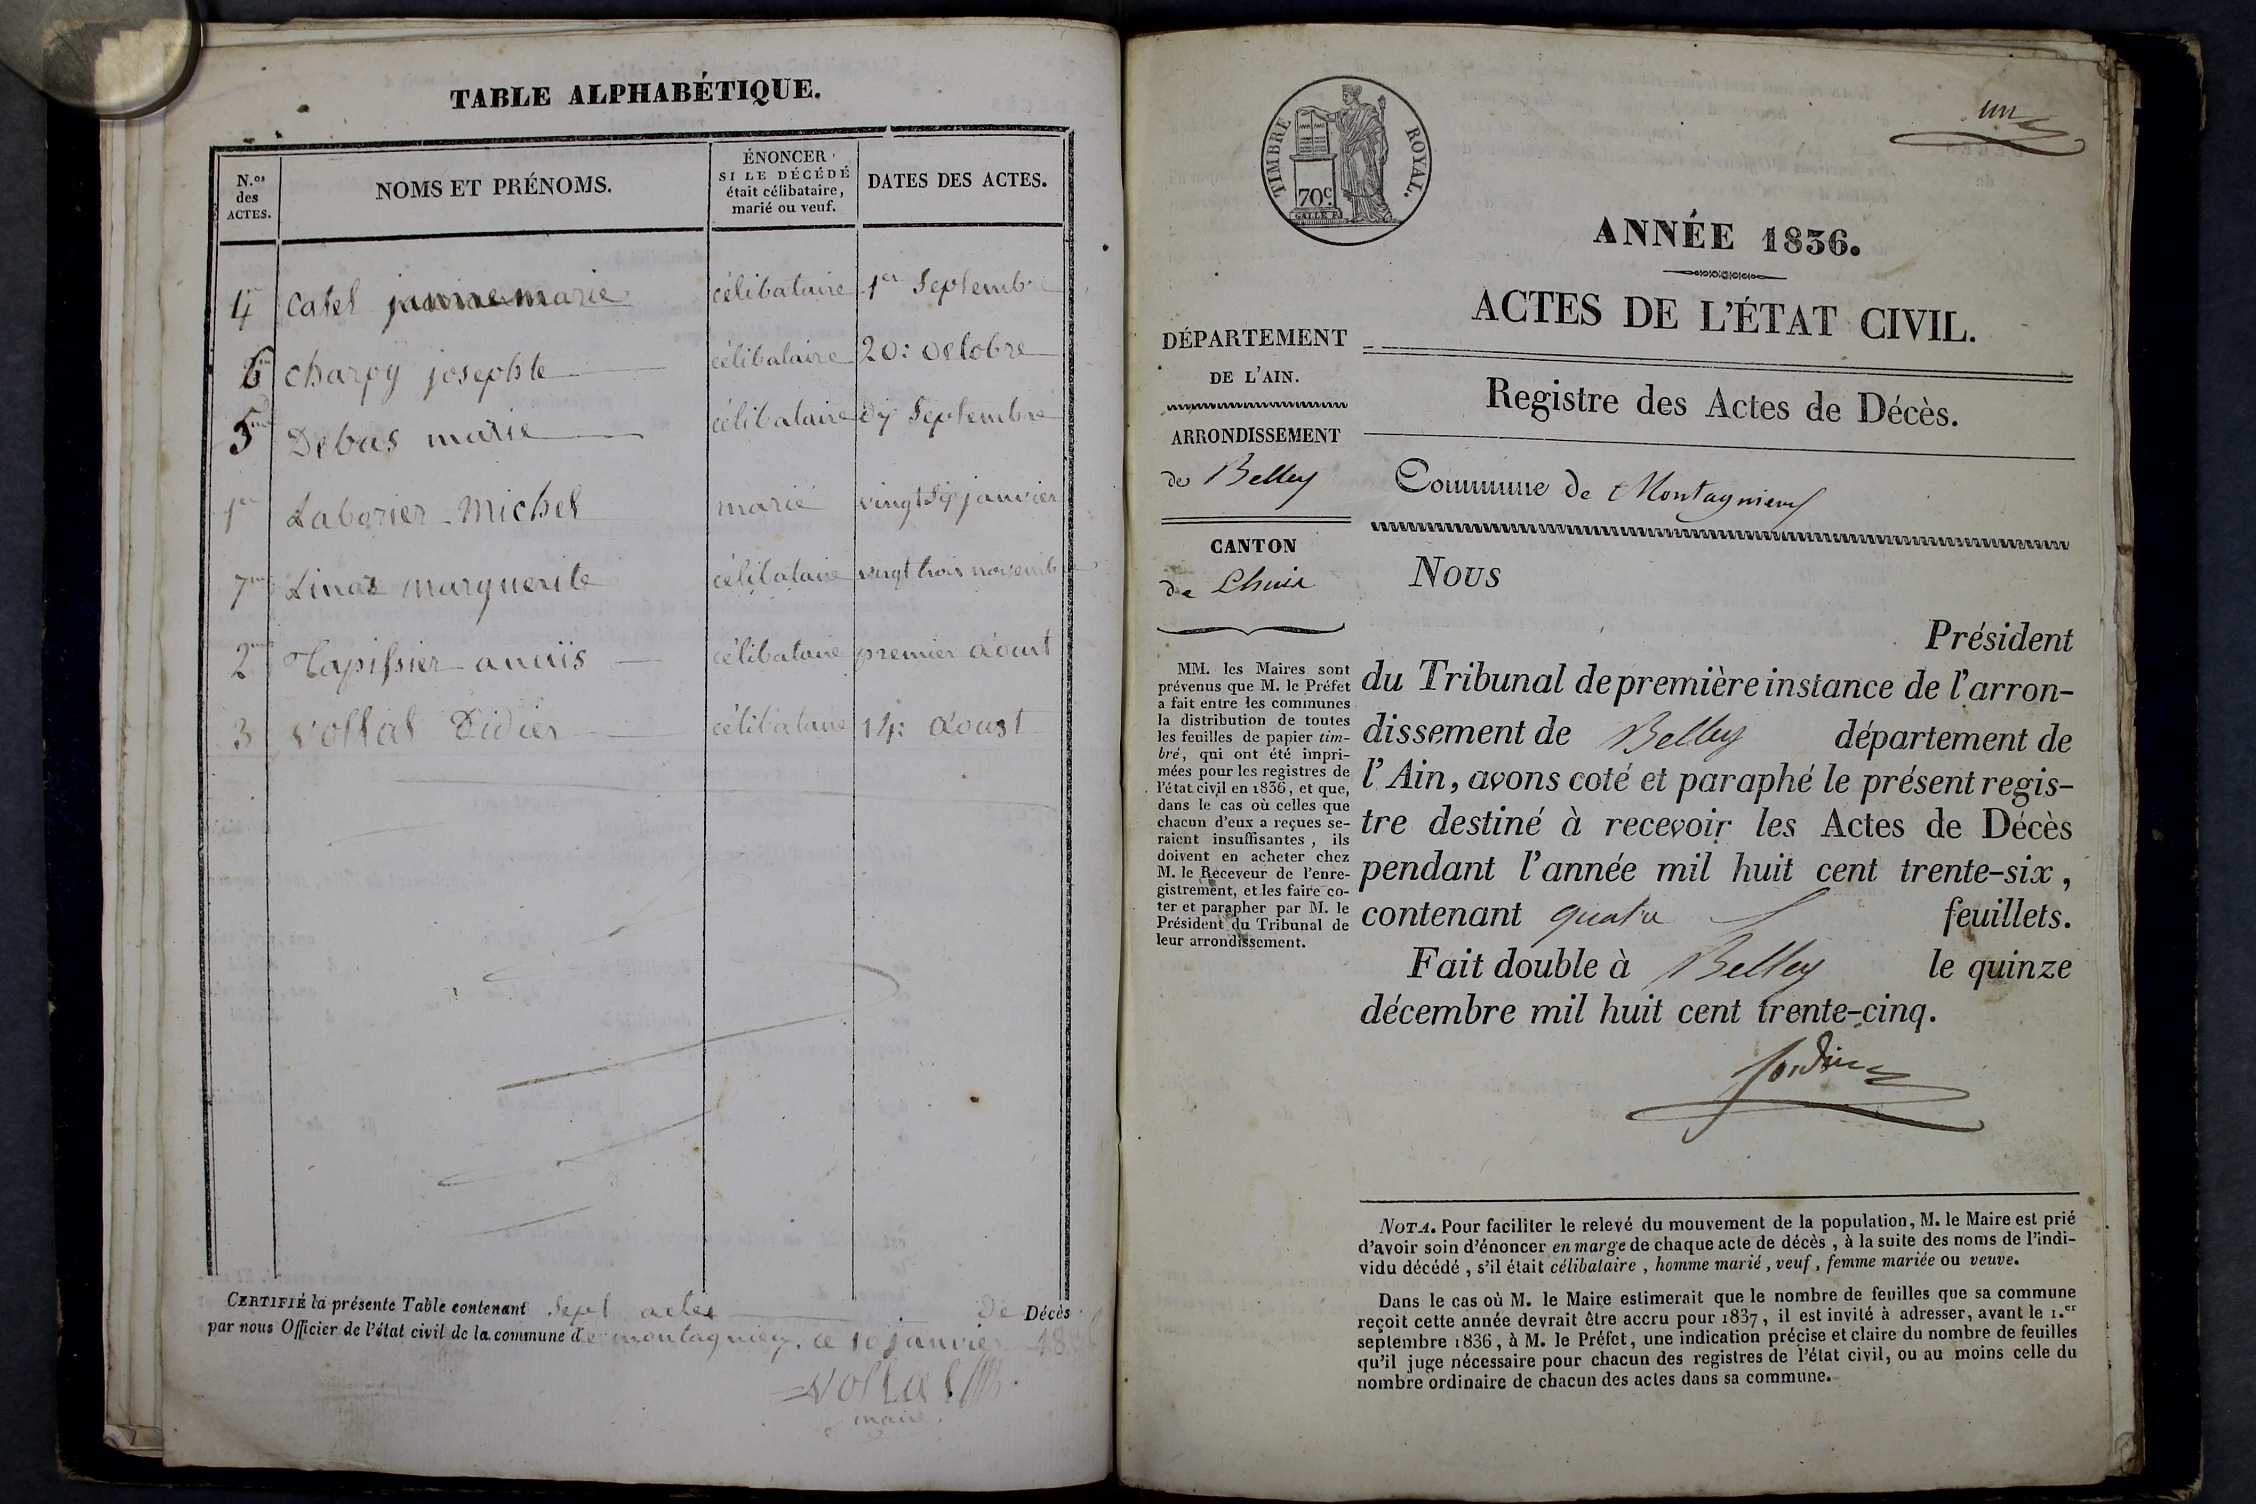 TABLE ALPHABÉTIQUE.
N.os des ACTES. NOMS ET PRÉNOMS. ÉNONCER SI LE DÉCÉDÉ était célibataire, marié ou veuf. DATES DES ACTES.
4 Catel jeanne marie célibataire 1er Septembre
6 charpy josephte célibataire 20: octobre
5 Debas marie célibataire Septembre
1er Laborier Michel marié vingt janvier
7 Linas marguerite célibataire vingt trois novembre
2 Tapissier anaïs célibataire premier aoust
3 vollat Didier célibataire 14: aoust
CERTIFIÉ la présente Table contenant Sept actes De Décès
par nous Officier de l'état civil de la commune de montagnieu. ce 10 janvier
vollat
maire.
un
TIMBRE ROYAL.
70c.
ANNÉE 1836.
ACTES DE L'ÉTAT CIVIL.
Registre des Actes de Décès.
DÉPARTEMENT
DE L'AIN.
ARRONDISSEMENT
de Belley
CANTON
de Lhuis
MM. les Maires sont
prévenus que M. le Préfet
a fait entre les communes
la distribution de toutes
les feuilles de papier tim-
bré, qui ont été impri-
mées pour les registres de
l'état civil en 1836, et que,
dans le cas où celles que
chacun d'eux a reçues se-
raient insuffisantes, ils
doivent en acheter chez
M. le Receveur de l'enre-
gistrement, et les faire co-
ter et parapher par M. le
Président du Tribunal de
leur arrondissement.
Commune de Montagnieu
NOUS
Président
du Tribunal de première instance de l'arron-
dissement de Belley département de
l'Ain, avons coté et paraphé le présent regis-
tre destiné à recevoir les Actes de Décès
pendant l'année mil huit cent trente-six,
contenant quatre feuillets.
Fait double à Belley le quinze
décembre mil huit cent trente-cinq.
NOTA. Pour faciliter le relevé du mouvement de la population, M. le Maire est prié
d'avoir soin d'énoncer en marge de chaque acte de décès, à la suite des noms de l'indi-
vidu décédé, s'il était célibataire, homme marié, veuf, femme mariée ou veuve.
Dans le cas où M. le Maire estimerait que le nombre de feuilles que sa commune
reçoit cette année devrait être accru pour 1837, il est invité à adresser, avant le 1.er
septembre 1836, à M. le Préfet, une indication précise et claire du nombre de feuilles
qu'il juge nécessaire pour chacun des registres de l'état civil, ou au moins celle du
nombre ordinaire de chacun des actes dans sa commune.